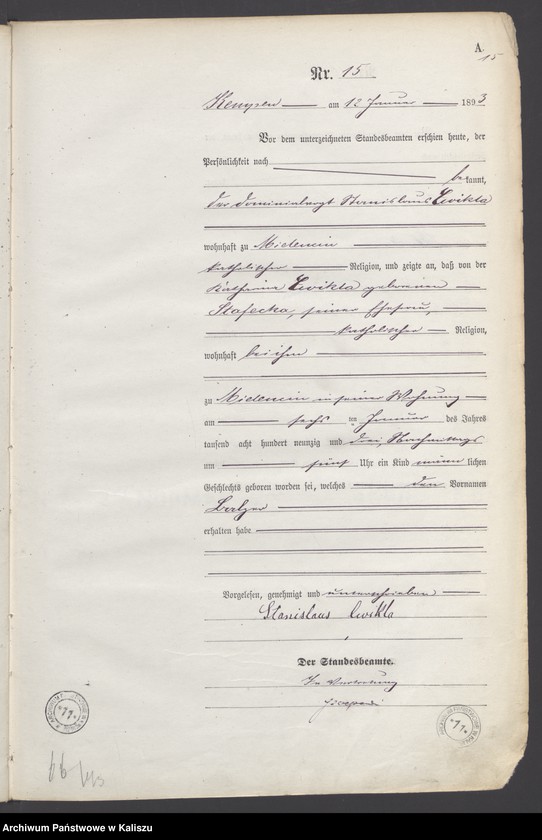 A.
15
Nr. 15
Kempen am 12 Januar 1893
Vor dem unterzeichneten Standesbeamten erschien heute, der
Persönlichkeit nach
be kannt,
der Stanislaus Cwikla
wohnhaft zu
katholischer Religion, und zeigte an, daß von der
Katharina Cwikla geborenen
seiner Ehefrau,
katholischer Religion,
wohnhaft bei ihm
zu in seiner Wohnung
am sechs ten Januar des Jahres
tausend acht hundert neunzig und drei Nachmittags
um fünf Uhr ein Kind männ lichen
Geschlechts geboren worden sei, welches den Vornamen
erhalten habe
Vorgelesen, genehmigt und unterschrieben
Stanislaus Cwikla
Der Standesbeamte.
In Vertretung
Archiwum Państwowe w Kaliszu